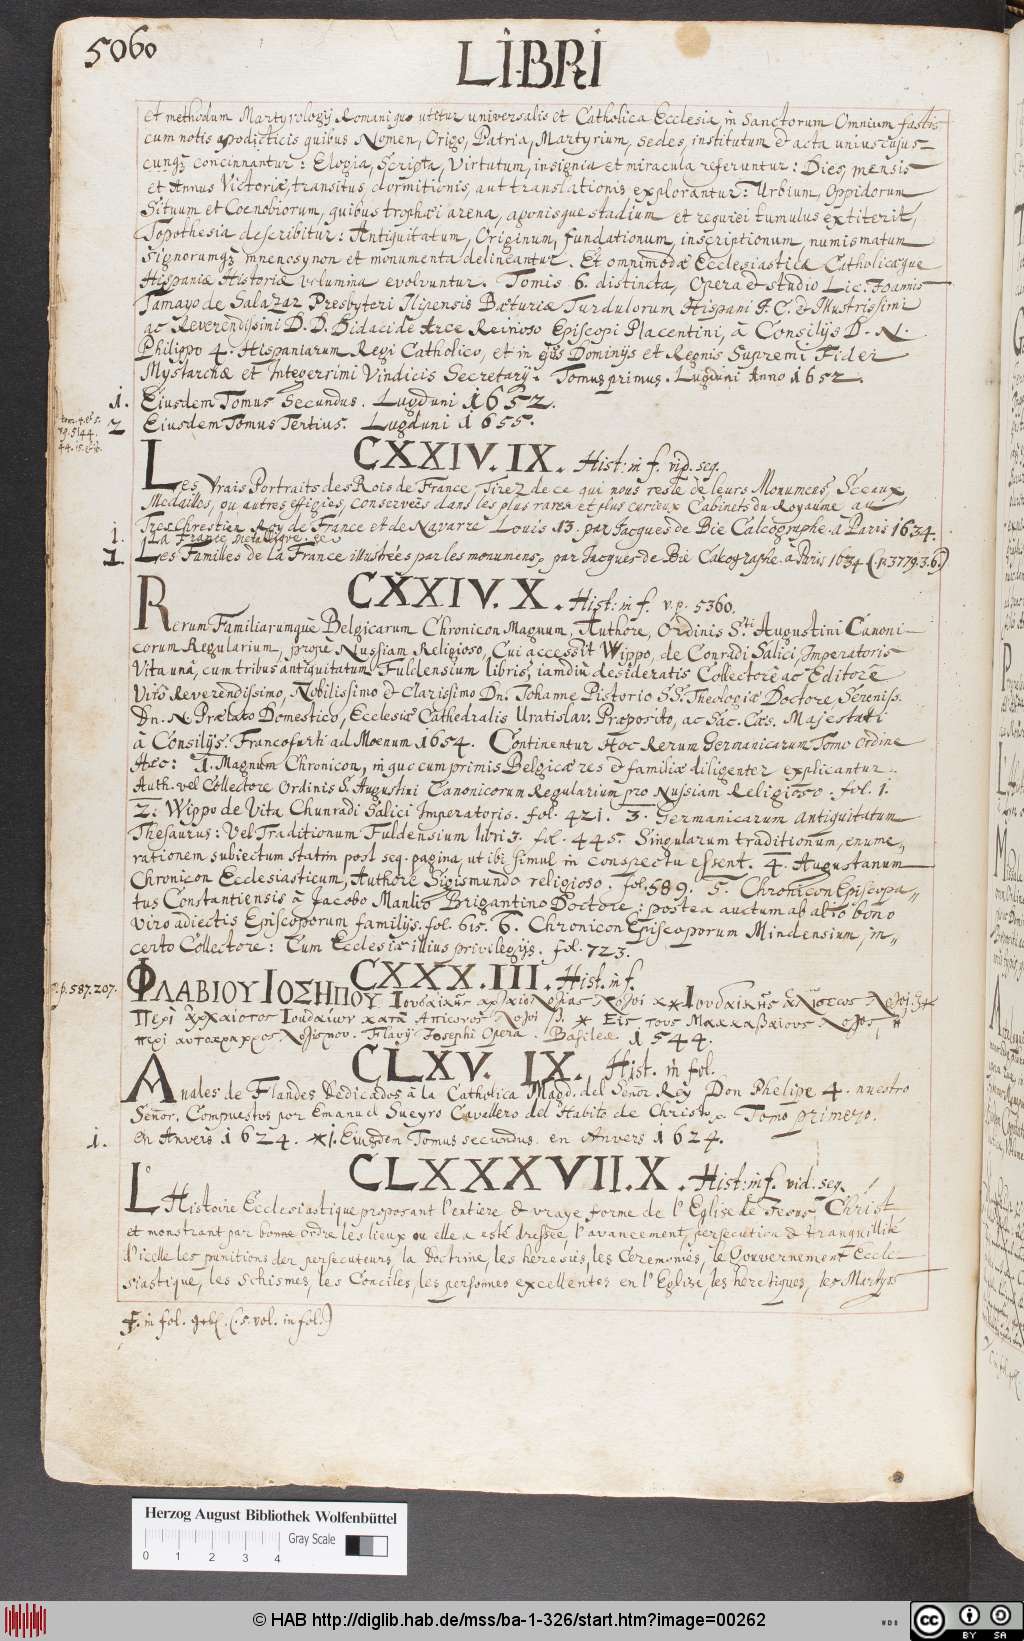 5060
LIBRI
et methodum Martyrologij Romani quo utitur universalis et Catholica Ecclesia in Sanctorum Omnium fastis
cum notis apodicticis quibus Nomen, Origo, Patria, Martyrium, sedes, institutum & acta uniuscujus-
cunq3 concinnantur: Elogia, Scripta, Virtutum, insignia et miracula referuntur: Dies, mensis
et Annus Victoriæ, transitus, dormitionis, aut translationis explorantur: Urbium, Oppidorum
Situum et Coenobiorum, quibus trophæi arena, agonisque stadium et requiei tumulus extiterit,
Topothesia describitur: Antiquitatum, Originum, fundationum, inscriptionum, numismatum
Signorumq3 mnemosynon et monumenta delineantur. Et omnimodæ Ecclesiasticæ Catholicæque
Hispaniæ Historiæ volumina evolvuntur. Tomis 6. distincta, Opera et studio Lic. Joannis
Tamayo de Salazar Presbyteri Ilipensis Bæturiæ Turdulorum Hispani J. C. & Illustrissimi
ac Reverendissimi D. D. Didaci de Arce Reinoso Episcopi Placentini, à Consilijs D. N.
Philippo 4. Hispaniarum Regi Catholico, et in ejus Dominijs et Regnis Supremi Fidei
Mystarchæ et Integerrimi Vindicis Secretarij. Tomus primus. Lugduni Anno 1652.
1. Eiusdem Tomus Secundus. Lugduni 1652.
2 Eiusdem Tomus Tertius. Lugduni 1655.
CXXIV. IX. Hist: in f. vid. seq.
Les Vrais Portraits des Rois de France, Tirez de ce qui nous reste de leurs Monumens, Sceaux,
Medailles, ou autres effigies, conservées dans les plus rares et plus curieux Cabinets du Royaume au
Tres Chrestien Roy de France et de Navarre Louis 13. par Jacques de Bie Calcographe. a Paris 1634.
1. La France metallique.
1. Les Familles de la France illustrées par les monumens, par Jacques de Bie Calcographe. à Paris 1634 (.p. 3779.3.6.)
CXXIV. X. Hist: in f. v. p. 5360.
Rerum Familiarumque Belgicarum Chronicon Magnum, Authore, Ordinis S.ti Augustini Canoni-
corum Regularium, prope Nussiam Religioso, Cui accessit Wippo, de Conradi Salici, Imperatoris
Vita unâ, cum tribus antiquitatum Fuldensium libris, iamdiu desideratis Collectore ac Editore
Viro Reverendissimo, Nobilissimo & Clarissimo Dn. Johanne Pistorio S.S. Theologiæ Doctore, Sereniss.
Dn. N. Prælato Domestico, Ecclesiæ Cathedralis Uratislav. Præposito, ac Sac. Cæs. Majestati
à Consilijs. Francofurti ad Moenum 1654. Continentur Hoc Rerum Germanicarum Tomo ordine
Hæc: 1. Magnum Chronicon, in quo cum primis Belgicæ res & familiæ diligenter explicantur:
Auth. vel Collectore Ordinis S. Augustini Canonicorum Regularium pro Nussiam Religioso. fol. 1.
2: Wippo de Vita Chunradi Salici Imperatoris. fol. 421. 3. Germanicarum antiquitatum
Thesaurus: Vel Traditionum Fuldensium libri 3. fol. 445. Singularum traditionum, enume,,
rationem subiectum statim post seq. pagina, ut ibi simul in conspectu essent. 4. Augustanum
Chronicon Ecclesiasticum, Authore Sigismundo religioso. fol. 589. 5. Chronicon Episcopa,,
tus Constantiensis à Jacobo Manlio Brigantino Doctore: postea auctum ab alio bono
viro adiectis Episcoporum familijs. fol. 615. 6. Chronicon Episcoporum Mindensium, in,,
certo Collectore: Cum Ecclesiæ illius privilegijs. fol. 723.
p. 587. 207.
CXXX. III. Hist. in f.
ΦΛΑΒΙΟΥ ΙΩΣΗΠΟΥ
Flavij Josephi Opera. Basileæ 1544.
CLXV. IX. Hist. in fol.
Anales de Flandes Dedicados à la Catholica Magd. del Señor Rey Don Phelipe 4. nuestro
Señor. Compuestos por Emanuel Sueyro Cavallero del Habito de Christo. Tomo primero.
1. en Anvers 1624. *1. Eiusdem Tomus secundus. en Anvers 1624.
CLXXXVII. X. Hist: in f. vid. seq.
L'Histoire Ecclesiastique proposant l'entiere & vraye forme de l'Eglise de Jesus Christ
et monstrant par bonne ordre les lieux ou elle a esté dressée, l'avancement, persecution & tranquillité
d'icelle les punitions des persecuteurs, la doctrine, les heresies, les Ceremonies, le Gouvernement Eccle-
siastique, les schismes, les Conciles, les personnes excellentes en l'Eglise, les heretiques, les Martyrs
in fol. (.5. vol. in fol.)
Herzog August Bibliothek Wolfenbüttel
Gray Scale
0 1 2 3 4
© HAB http://diglib.hab.de/mss/ba-1-326/start.htm?image=00262
WDB
cc BY SA